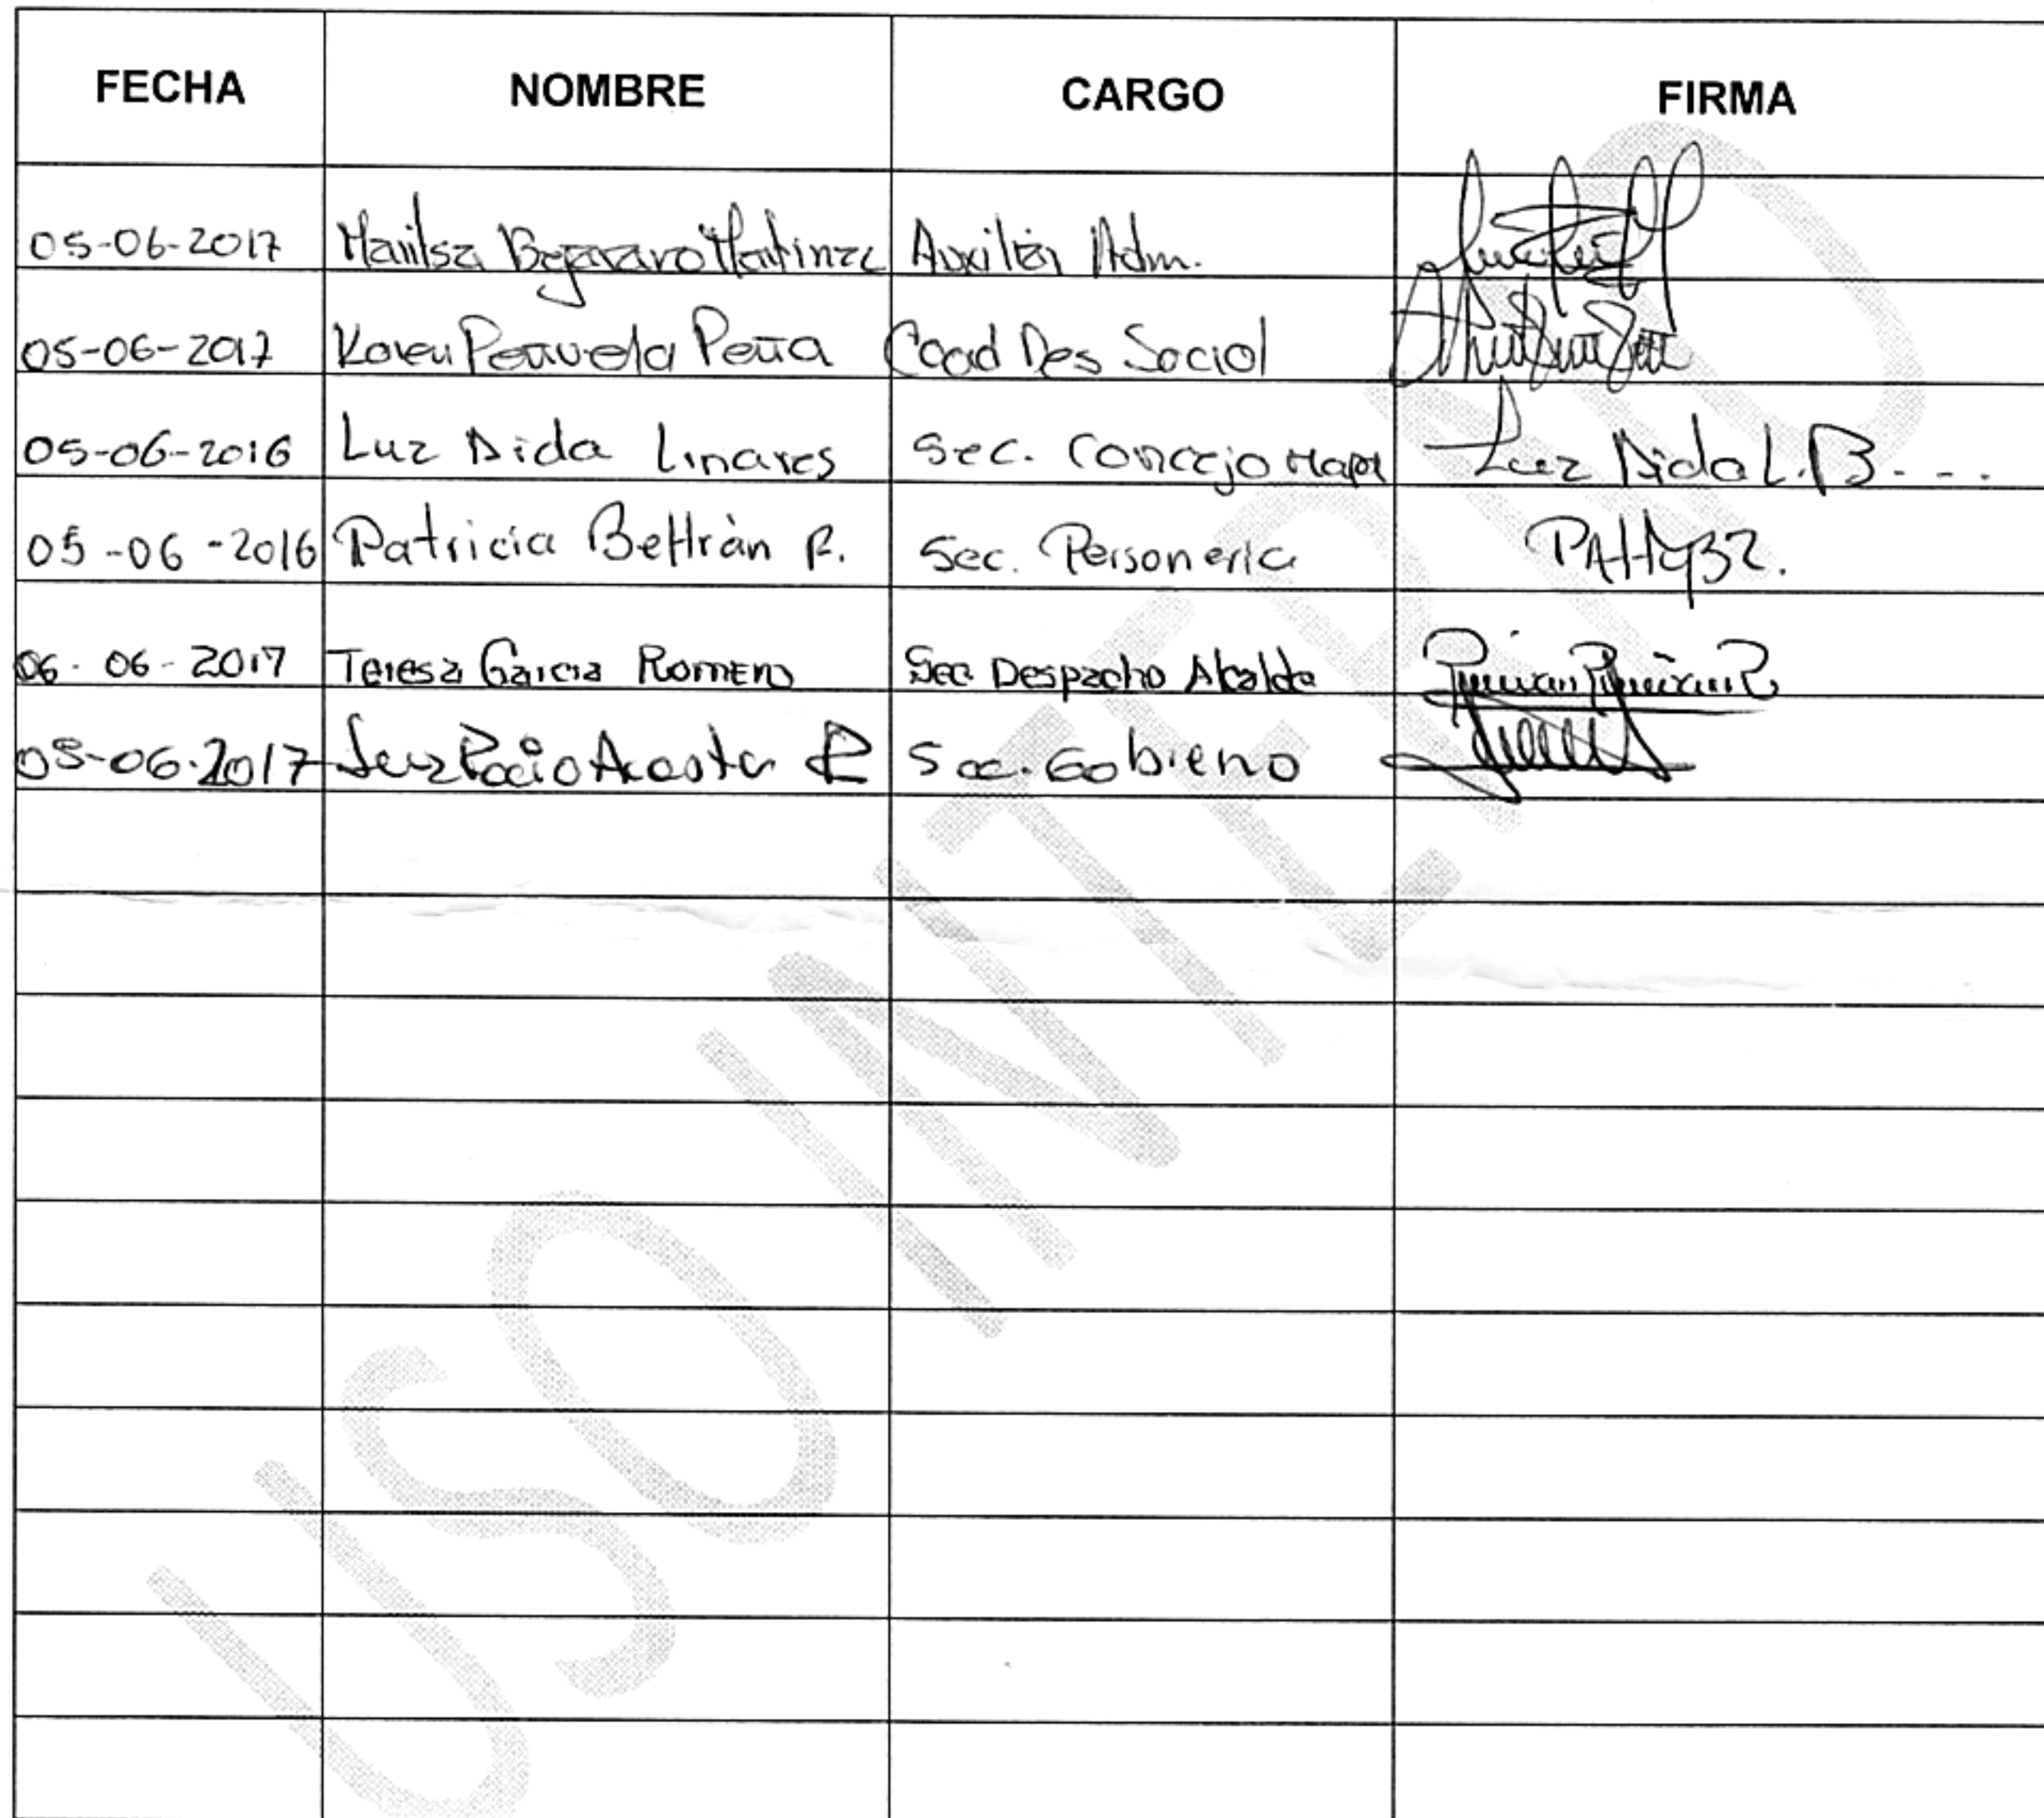 FECHA NOMBRE CARGO FIRMA
05-06-2017 Marilsa Martinez Auxiliar Adm.
05-06-2017 Karen Peñuela Peña Coord Des Social
05-06-2016 Luz Aida Linares Sec. Concejo Luz Aida L.B...
05-06-2016 Patricia Beltràn R. Sec. Personeria PAtty32.
06-06-2017 Teresa Garcia Romero Sec Despacho Alcalde
05-06-2017 Luz Rocio Acosta R Sec. Gobieno
USO INTERNO